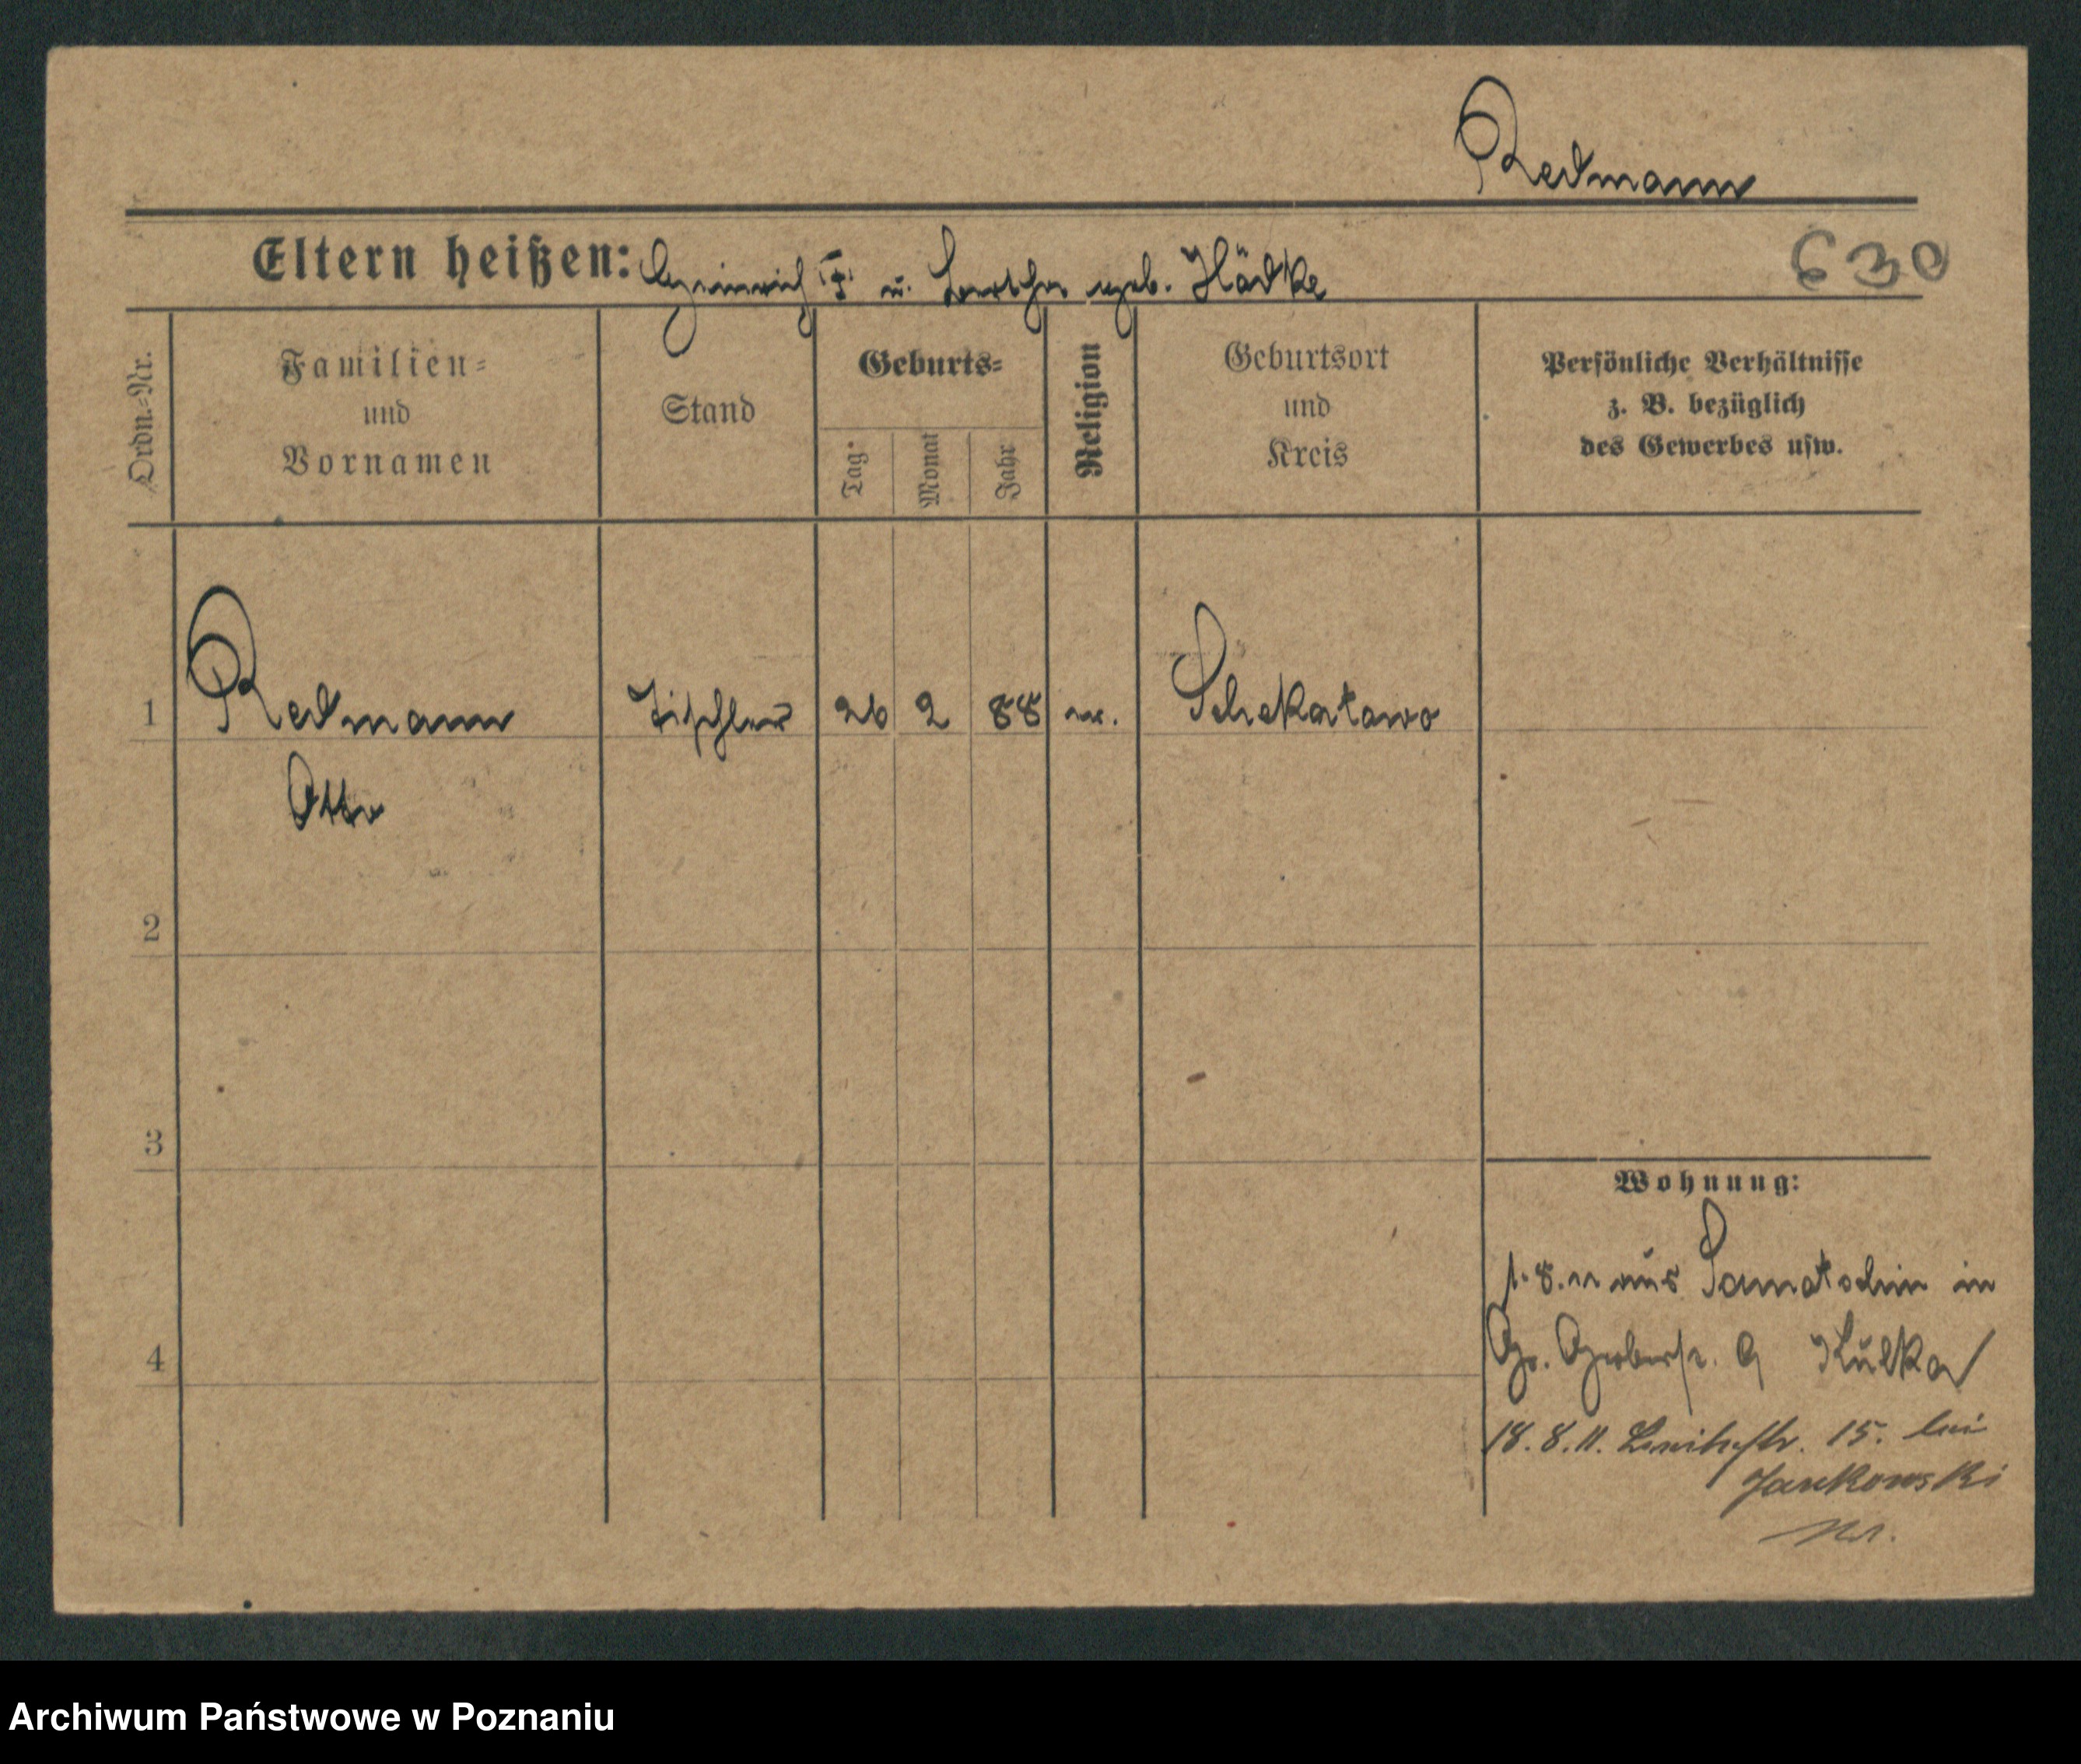 Redmann
Eltern heißen: Heinrich † u. Bertha geb. Hädke
630
Ordn.-Nr.
Familien-
und
Vornamen
Stand
Geburts-
Tag
Monat
Jahr
Religion
Geburtsort
und
Kreis
Persönliche Verhältnisse
z. B. bezüglich
des Gewerbes usw.
1 Redmann Tischler 26 2 88 ev. Schokatowo
Otto
2
3
4
Wohnung:
1.8.11 aus Samotschin in
Gr. Gerberstr. 9 Kulka
18.8.11. Breitestr. 15. bei
Jankowski
Archiwum Państwowe w Poznaniu